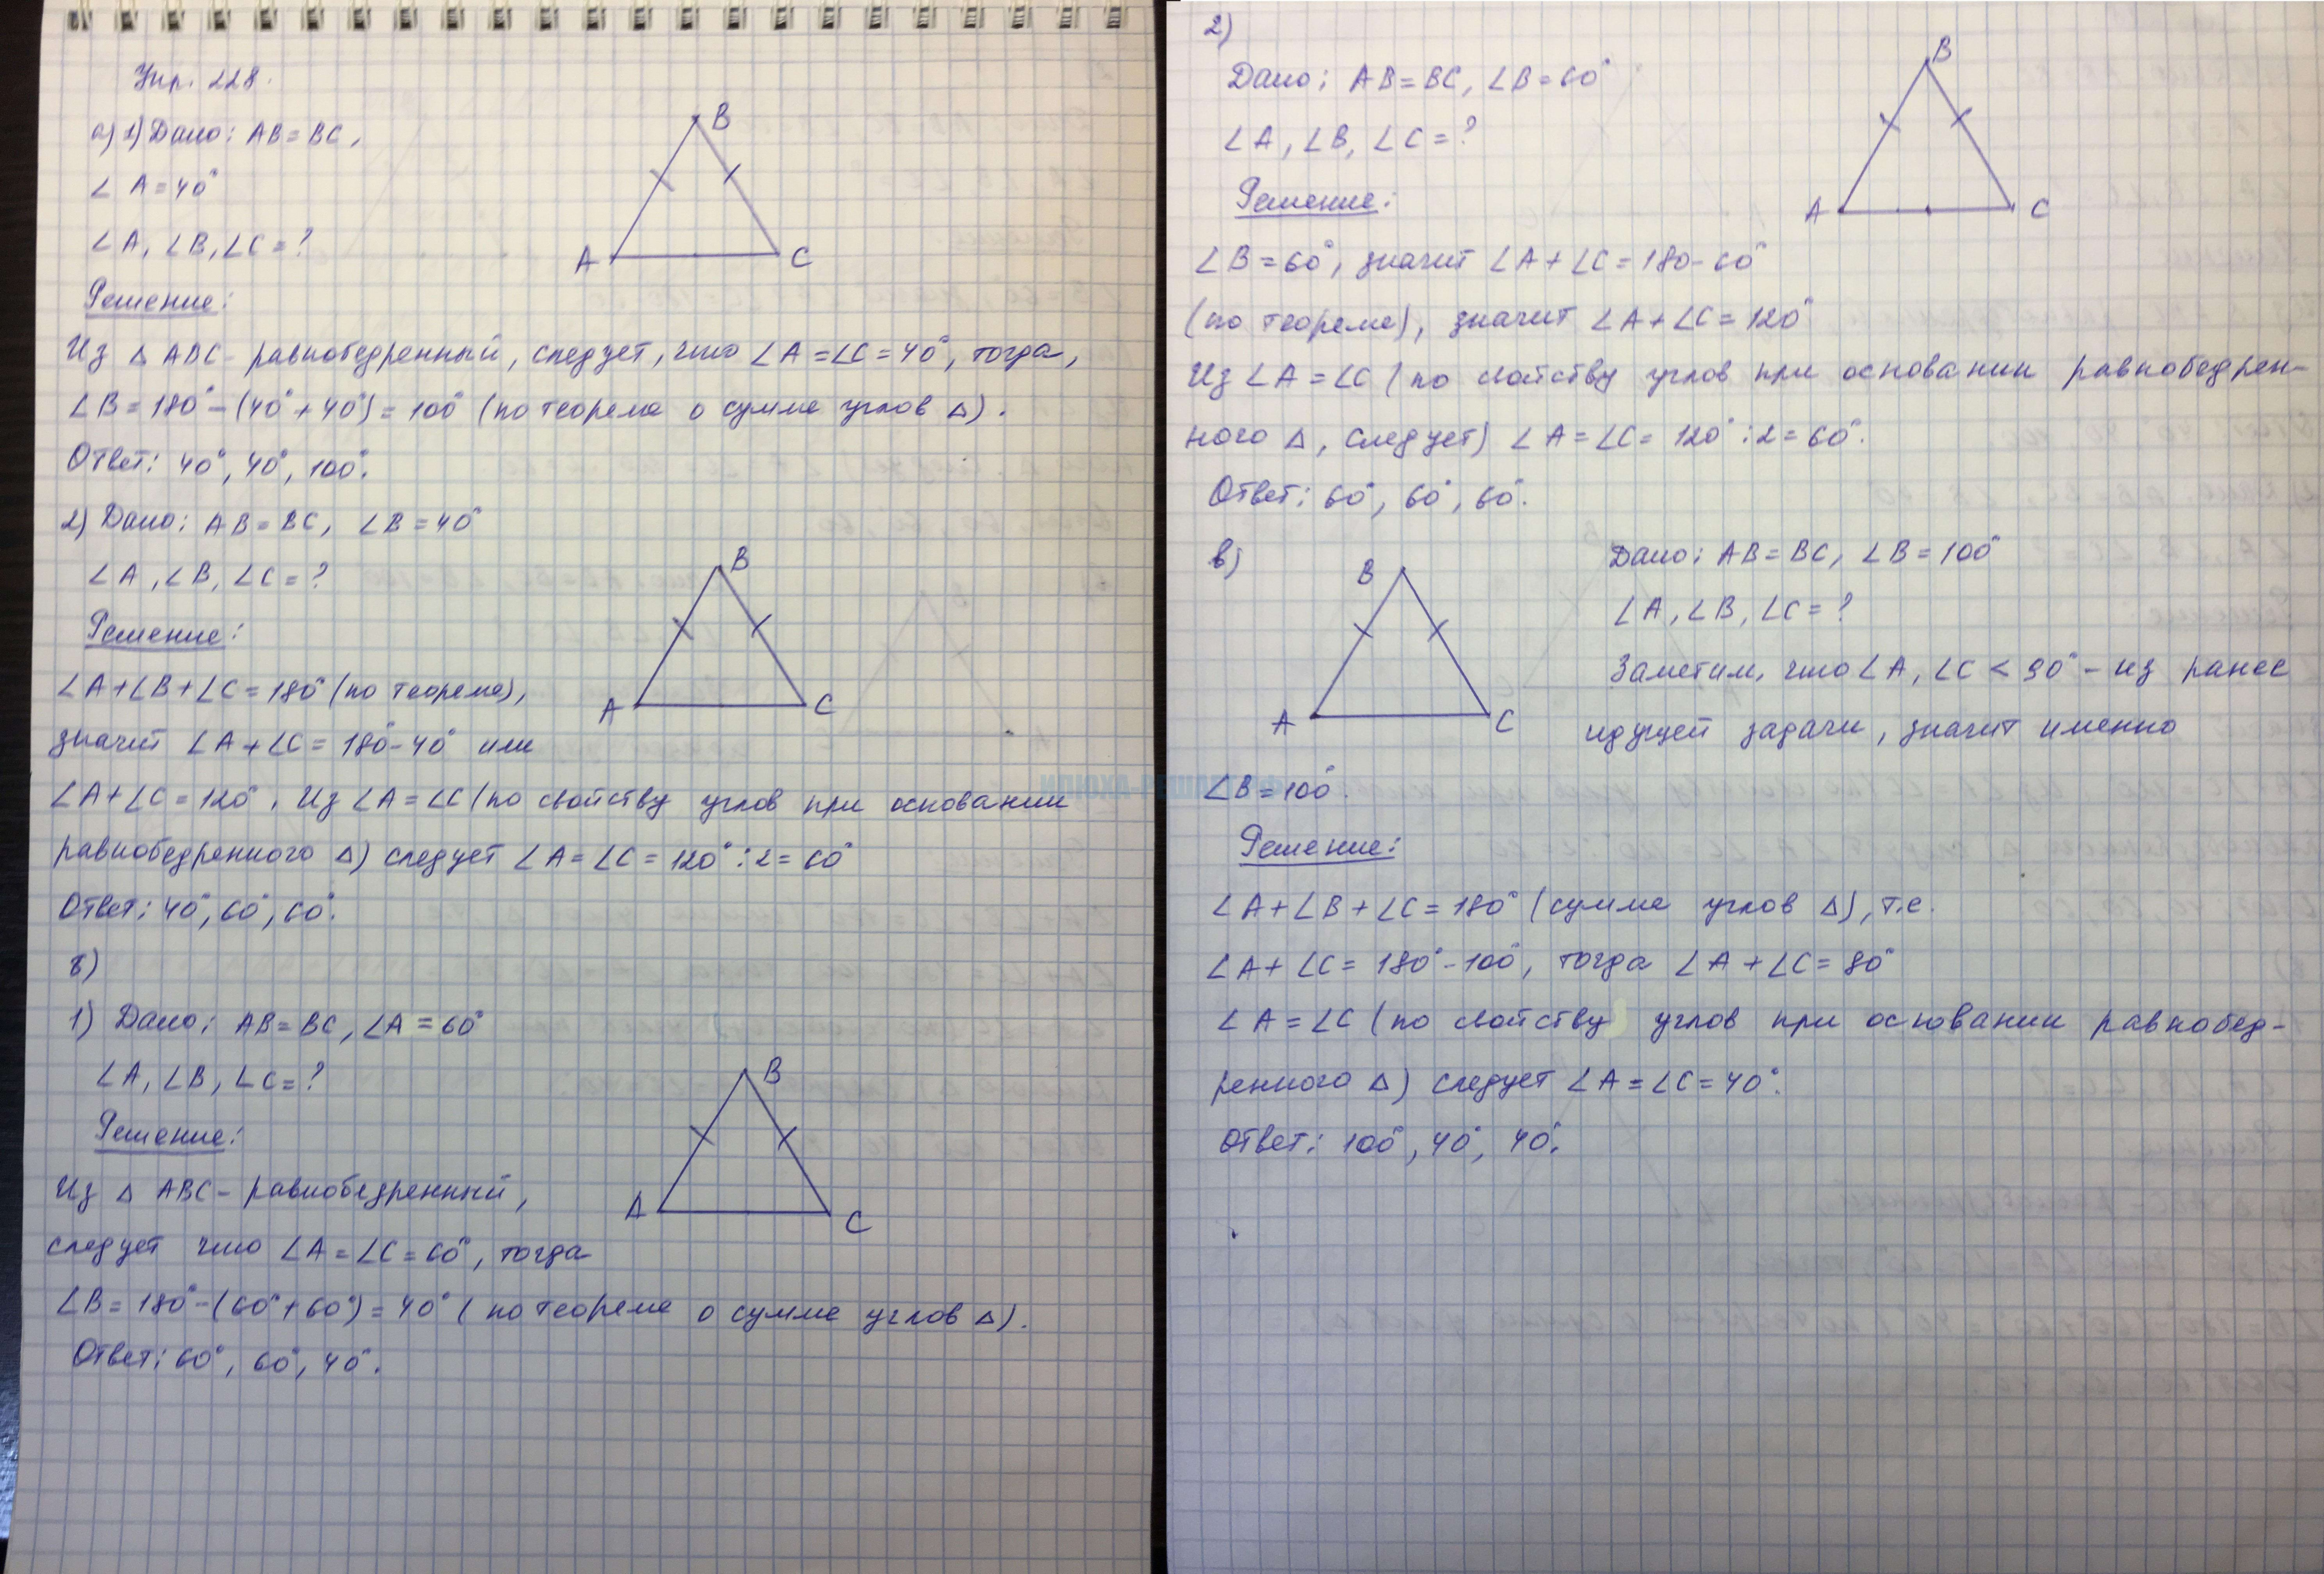 Упр. 228.
а) 1) Дано: AB = BC,
∠A = 40°
∠A, ∠B, ∠C = ?
B
A
C
Решение:
Из △ ABC - равнобедренный, следует, что ∠A = ∠C = 40°, тогда,
∠B = 180° - (40° + 40°) = 100° (по теореме о сумме углов △).
Ответ: 40°, 40°, 100°.
2) Дано: AB = BC, ∠B = 40°
∠A, ∠B, ∠C = ?
B
A
C
Решение:
∠A + ∠B + ∠C = 180° (по теореме),
значит ∠A + ∠C = 180° - 40° или
∠A + ∠C = 120°. Из ∠A = ∠C (по свойству углов при основании
равнобедренного △) следует ∠A = ∠C = 120° : 2 = 60°
Ответ: 40°, 60°, 60°.
б)
1) Дано: AB = BC, ∠A = 60°
∠A, ∠B, ∠C = ?
B
A
C
Решение:
Из △ ABC - равнобедренный,
следует что ∠A = ∠C = 60°, тогда
∠B = 180° - (60° + 60°) = 40° (по теореме о сумме углов △).
Ответ: 60°, 60°, 40°.
2)
Дано: AB = BC, ∠B = 60°
∠A, ∠B, ∠C = ?
B
A
C
Решение:
∠B = 60°, значит ∠A + ∠C = 180 - 60°
(по теореме), значит ∠A + ∠C = 120°
Из ∠A = ∠C (по свойству углов при основании равнобедрен-
ного △, следует) ∠A = ∠C = 120° : 2 = 60°.
Ответ: 60°, 60°, 60°.
в)
B
A
C
Дано: AB = BC, ∠B = 100°
∠A, ∠B, ∠C = ?
Заметим, что ∠A, ∠C < 90° - из ранее
идущей задачи, значит именно
∠B = 100°.
Решение:
∠A + ∠B + ∠C = 180° (сумме углов △), т.е.
∠A + ∠C = 180° - 100°, тогда ∠A + ∠C = 80°
∠A = ∠C (по свойству углов при основании равнобед-
ренного △) следует ∠A = ∠C = 40°.
Ответ: 100°, 40°, 40°.